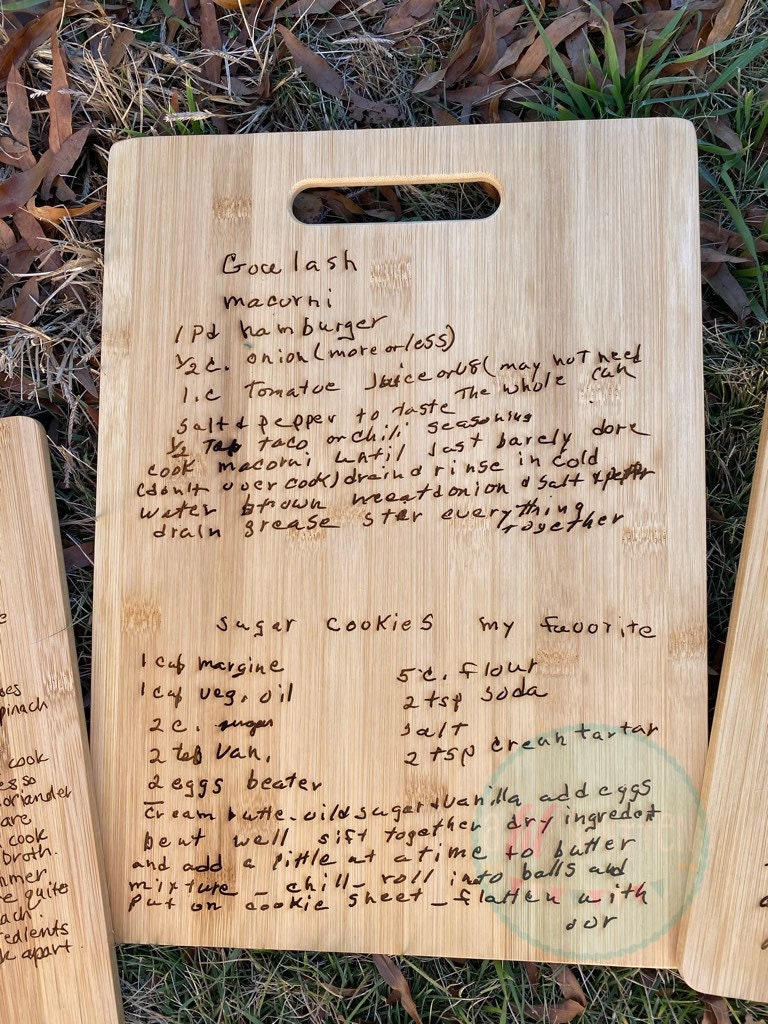 Goce lash
macorni
1 Pd hamburger
1/2 c. onion (more or less)
1. c Tomatoe Juice or V8 (may not need
The whole can
salt & pepper to taste
1/2 Tsp taco or chili seasoning
cook macorni until Just barely done
(don't over cook) drain d rinse in cold
water brown meat d onion & salt & pepper
drain grease ster everything
together
Sugar cookies my favorite
1 cup margine
1 cup veg. oil
2 c. sugar
2 tsp van.
2 eggs beater
5 c. flour
2 tsp soda
salt
2 tsp cream tartar
cream butte. oil d sugar & vanilla add eggs
beat well sift together dry ingredent
and add a little at a time to batter
mixture _ chill_ roll into balls and
put on cookie sheet _ flatten with
oes
pinach
cook
es so
oriander
are
cook
broth.
mmer
e quite
ach.
redients
k apart.